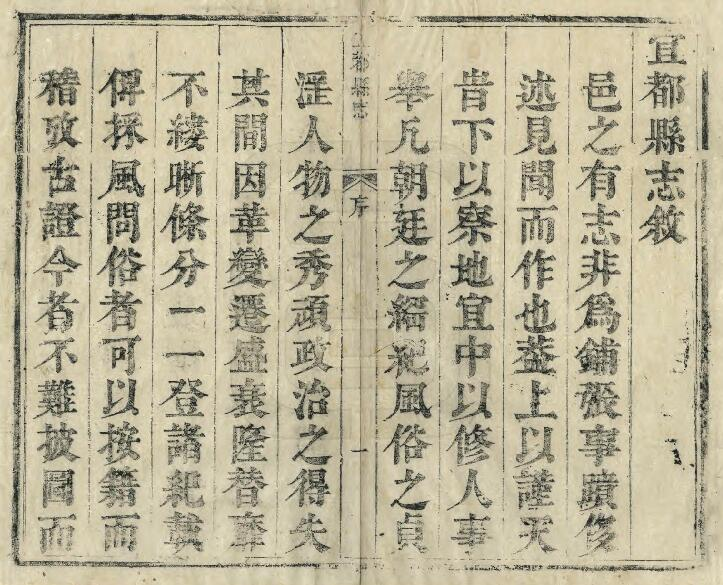 宜都縣志敘
邑之有志非為鋪張事蹟侈
述見聞而作也葢上以謹天
眚下以察地宜中以修人事
舉凡朝廷之綱紀風俗之貞
宜都縣志
序
一
淫人物之秀頑政治之得失
其間因革變遷盛衰隆替靡
不縷晰條分一一登諸紀載
俾採風問俗者可以按籍而
稽攷古證今者不難披圖而